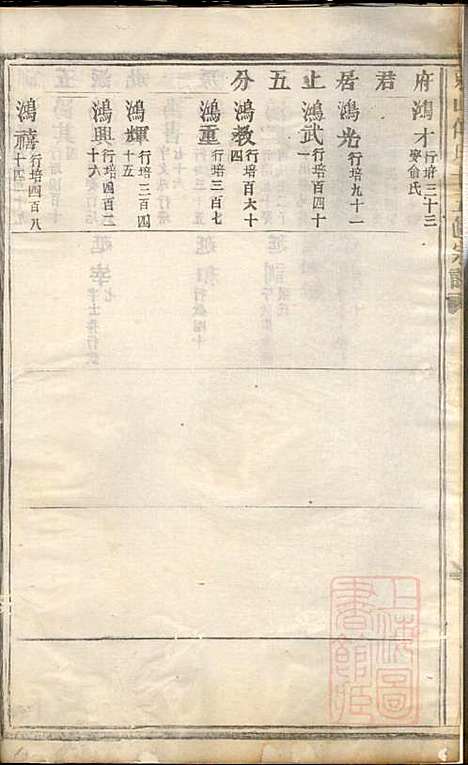 府 鴻才 行培三十三 娶俞氏
君
居 鴻光 行培九十一
止 鴻武 行培百四十一
五
分 鴻教 行培百六十四
鴻重 行培三百七
鴻輝 行培三百四十五
鴻興 行培四百二十六
鴻禧 行培四百八十四
上海圖書館藏